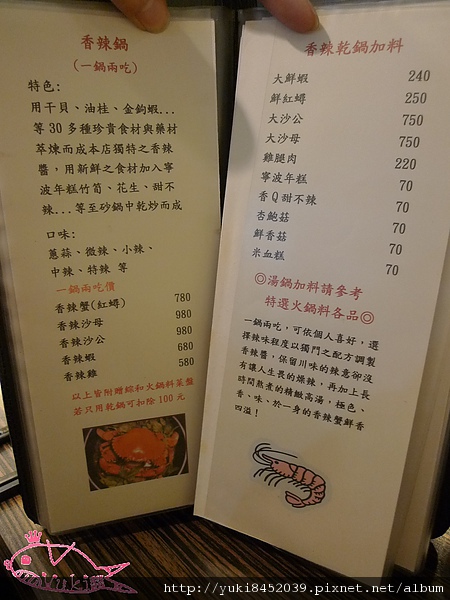 香辣鍋
(一鍋兩吃)
特色:
用干貝、油桂、金鉤蝦...
等30多種珍貴食材與藥材
萃煉而成本店獨特之香辣
醬,用新鮮之食材加入寧
波年糕竹筍、花生、甜不
辣...等至砂鍋中乾炒而成
口味:
蔥蒜、微辣、小辣、
中辣、特辣 等
一鍋兩吃價
香辣蟹(紅蟳) 780
香辣沙母 980
香辣沙公 980
香辣蝦 680
香辣雞 580
以上皆附贈綜和火鍋料菜盤
若只用乾鍋可扣除100元
香辣乾鍋加料
大鮮蝦 240
鮮紅蟳 250
大沙公 750
大沙母 750
雞腿肉 220
寧波年糕 70
香Q甜不辣 70
杏鮑菇 70
鮮香菇 70
米血糕 70
◎湯鍋加料請參考
特選火鍋料各品◎
一鍋兩吃,可依個人喜好,選
擇辣味程度以獨門之配方調製
香辣醬,保留川味的辣意卻沒
有讓人生畏的燥辣,再加上長
時間熬煮的精緻高湯,極色、
香、味、於一身的香辣蟹鮮香
四溢!
yuki
http://yuki8452039.pixnet.net/album